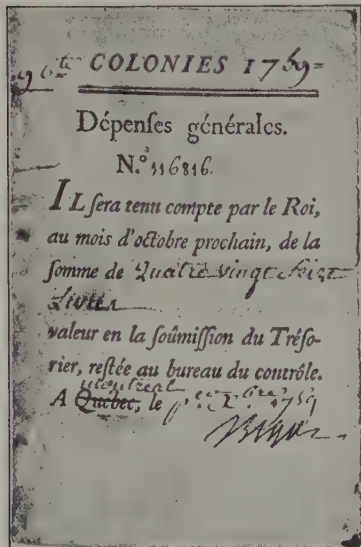 COLONIES 1759=
Dépenſes générales.
N.º 116816.
IL ſera tenu compte par le Roi,
au mois d'octobre prochain, de la
ſomme de Quatre vingt Seize
Livres
valeur en la ſoûmiſſion du Tréſo-
rier, reſtée au bureau du contrôle.
montreal
A Quebec, le 1759
Bigot